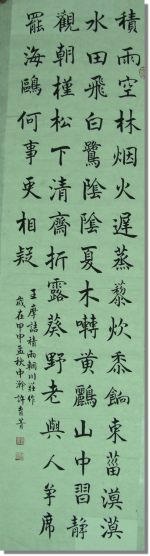 積雨空林烟火遲蒸藜炊黍餉東菑漠漠
水田飛白鷺陰陰夏木囀黄鸝山中習静
觀朝槿松下清齋折露葵野老與人争席
罷海鷗何事更相疑
王摩詰積雨輞川莊作
歲在甲申孟秋中瀚許青